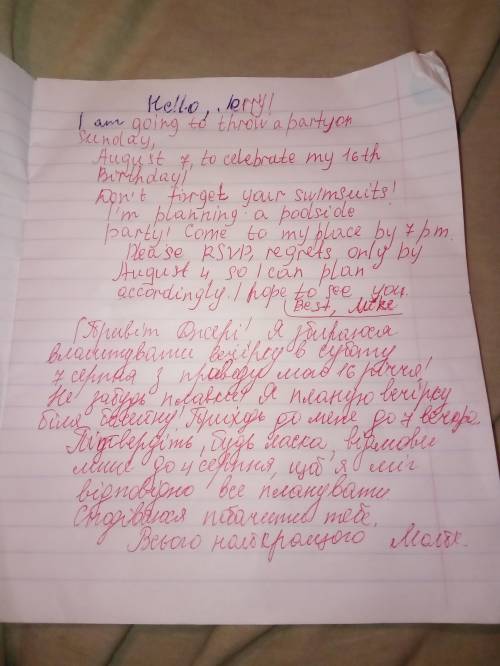 Hello, Jerry!
I am going to throw a party on
Sunday,
August 7, to celebrate my 16th
Birthday!
Don't forget your swimsuits!
I'm planning a poolside
party! Come to my place by 7 pm.
Please RSVP, regrets only by
August 4, so I can plan
accordingly. I hope to see you.
Best, Mike
Привіт Джері! Я збираюся
влаштувати вечірку в суботу
7 серпня з приводу мого 16 річчя!
Не забудь плавки! Я планую вечірку
біля басейну! Приходь до мене до 7 вечора.
Підтвердіть, будь ласка, відмови
лише до 4 серпня, щоб я міг
відповідно все планувати
Сподіваюся побачити тебе.
Всього найкращого Майк.